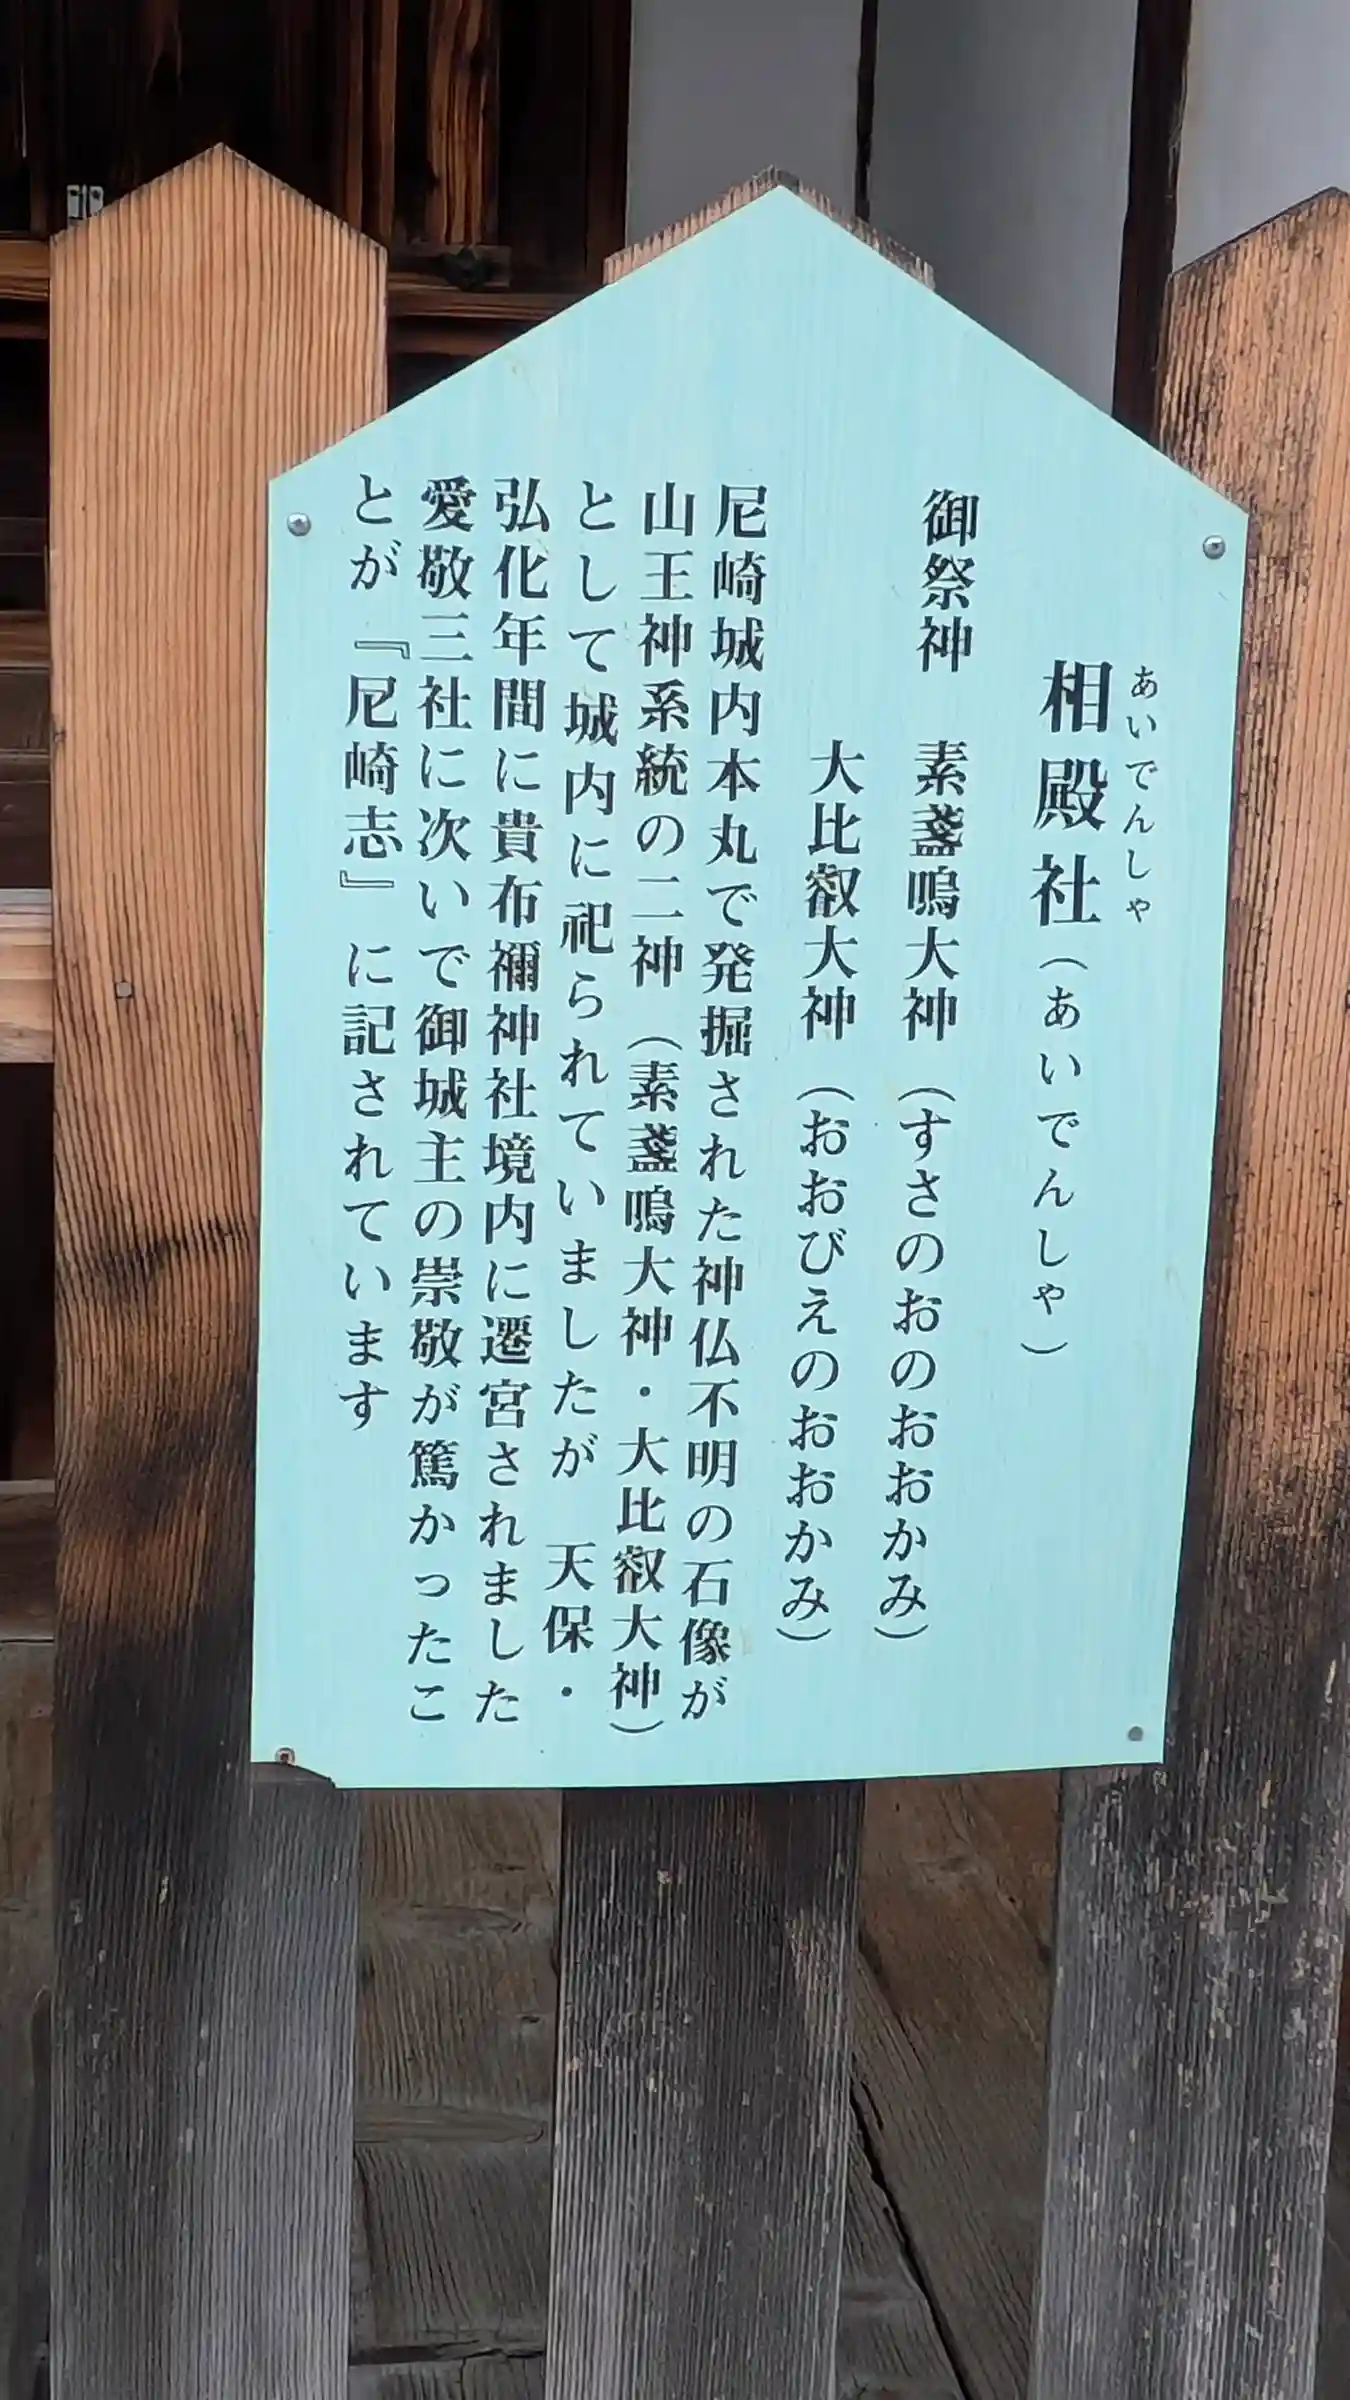 相殿社（あいでんしゃ）
あいでんしゃ
御祭神　素盞嗚大神（すさのおのおおかみ）
大比叡大神（おおびえのおおかみ）
尼崎城内本丸で発掘された神仏不明の石像が
山王神系統の二神（素盞嗚大神・大比叡大神）
として城内に祀られていましたが　天保・
弘化年間に貴布禰神社境内に遷宮されました
愛敬三社に次いで御城主の崇敬が篤かったこ
とが『尼崎志』に記されています